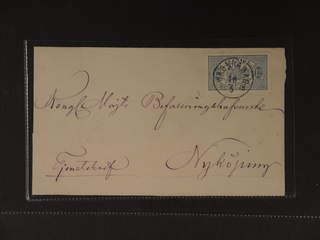 Kongl Majts Befallningshafvande
Tjenstebref
Nyköping